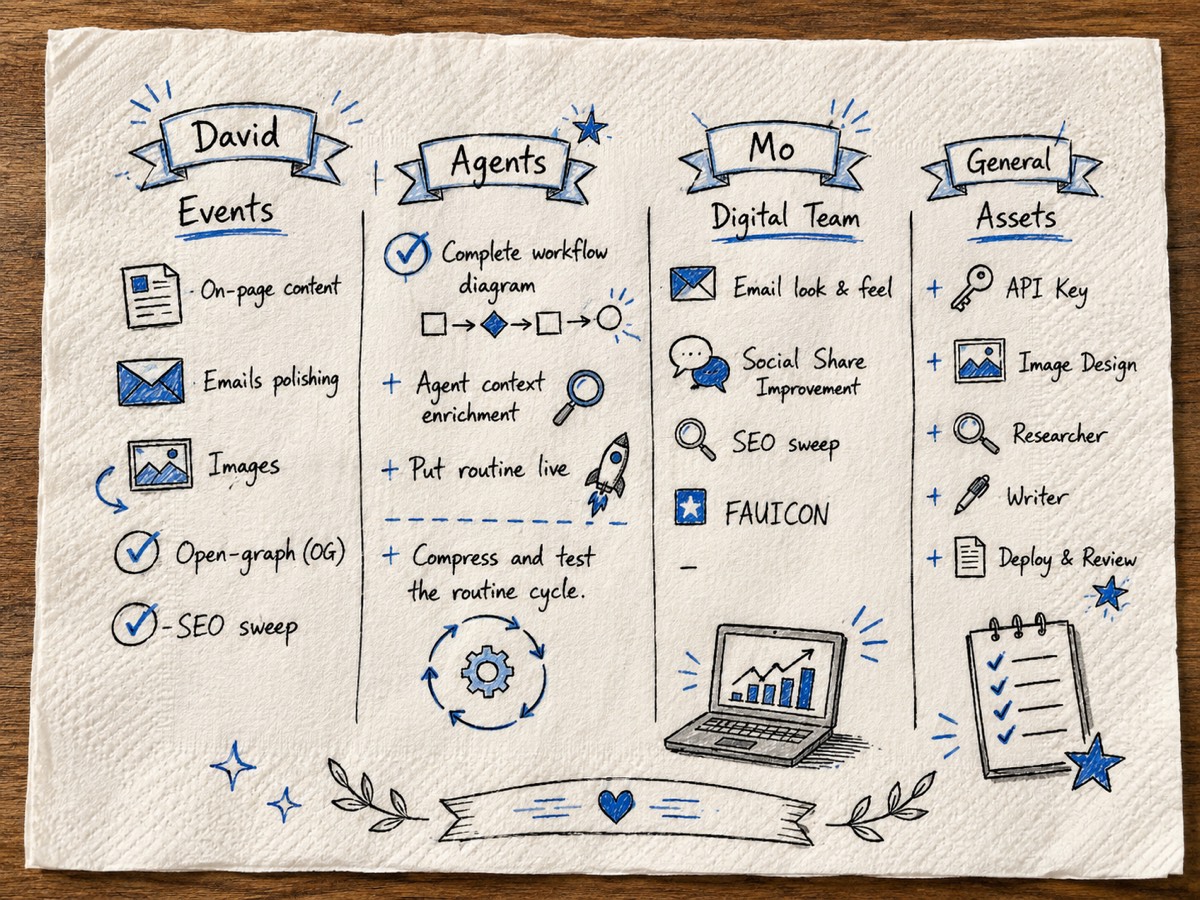 David
Events
On-page content
Emails polishing
Images
Open-graph (OG)
-SEO sweep
Agents
Complete workflow
diagram
+ Agent context
enrichment
+ Put routine live
+ Compress and test
the routine cycle.
Mo
Digital Team
Email look & feel
Social Share
Improvement
SEO sweep
FAUICON
–
General
Assets
+ API Key
+ Image Design
+ Researcher
+ Writer
+ Deploy & Review